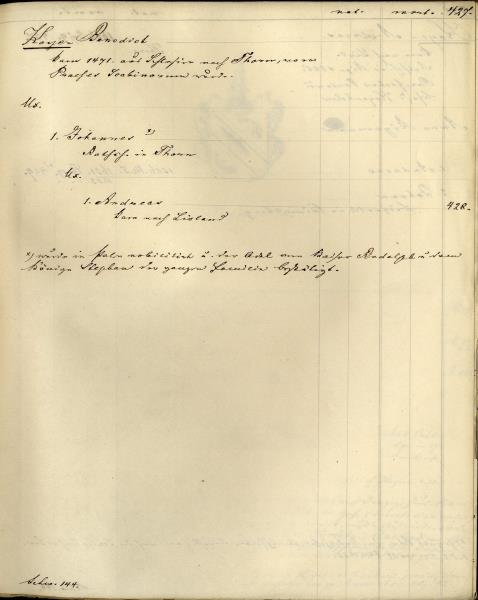 nat. mort. 427.
Koyen Benedict
kam 1471. aus Schlesien nach Thorn, wo er
Praeses Scabinorum wurde.
Ux.
1. Johannes *)
Rathsh. in Thorn
Ux.
1. Andreas 428.
kam nach Livland
*) wurde in Polen nobilitirt u. der Adel vom Kaiser Rudolph u. dem
Könige Stephan der ganzen Familie bestätigt.
144.